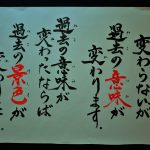 変わらないが
過去の意味が
変わります。
過去の意味が
変わったならば
過去の景色が